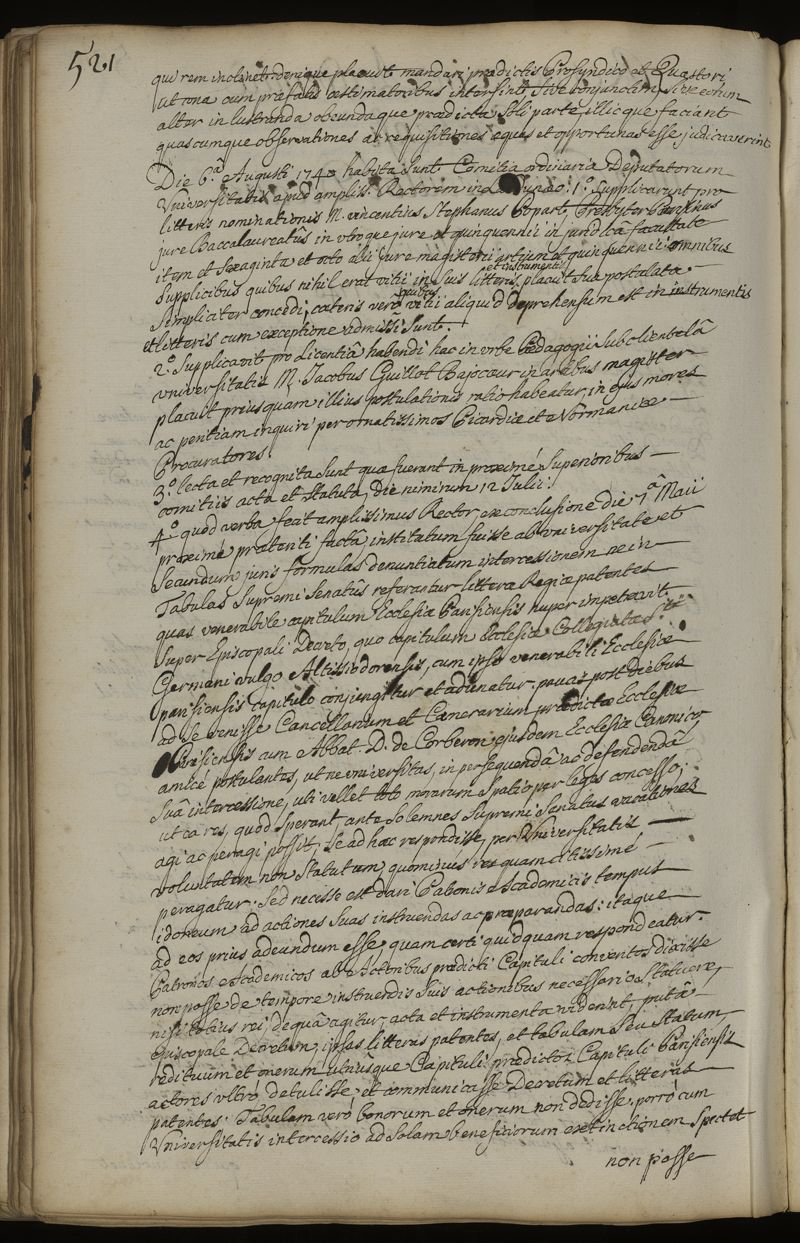 521
qui rem inclinet: denique placuit mandari prædictis Prosyndico et Quæstori
ut una cum præfatis æstimatoribus intersint sive conjunctim, sive eorum
alter in lustranda obeundaque prædicta soli parte illicque faciant
quascumque observationes ac requisitiones æquas et opportunas esse judicaverint
Die 6.ª Augusti 1740 habita sunt Comitia ordinaria Deputatorum
Universitatis apud ampliss. Rectorem in quibus 1.º supplicarunt pro
litteris nominationis M. vincentius Stephanus Popart, Presbyter Parisinus
jure Baccalaureatûs in utroque jure et quinquennii in juridicâ facultate
item et sexaginta et octo alii jure magisterii artium et quinquennii: omnibus
supplicibus quibus nihil erat vitii in suis litteris et instrumentis placuit sua postulata
simpliciter concedi, cæteris vero quibus vitii aliquid deprehensum est in instrumentis
et litteris cum exceptione admissi sunt.
2.º Supplicavit pro Licentiâ habendi hac in urbe Pædagogii sub clientelâ
universitatis M. Jacobus Guillot Bajocæus in artibus magister
placuit priusquam illius postulationis ratio habeatur, in ejus mores
ac peritiam inquiri per ornatissimos Picardiæ et Normaniæ
Procuratores
3.º lecta et recognita sunt quæ fuerant in proximé superioribus
comitiis acta et statuta, Die nimirum 12 Julii:
4.º quod verba fecit amplissimus Rector ex conclusione die 7.ª Maii
proximé præteriti factâ institutum fuisse ab universitate et
secundum juris formulas denuntiatum intercessionem ne in
Tabulas supremi Senatûs referantur litteræ Regiæ patentes
quas venerabile capitulum Ecclesiæ Parisiensis nuper impetravit
super Episcopali Decreto, quo capitulum Ecclesiæ Collegiatæ Sti
Germani vulgo Altissiodorensis, cum ipso venerabili Ecclesiæ
parisiensis capitulo conjungitur et adunatur paucis post diebus
ad se venisse Cancellarium et Camerarium prædictæ Ecclesiæ
Parisiensis cum Abbat. D. de Corberon ejusdem Ecclesiæ Canonico,
amicé postulantes, ut ne universitas, in persequendâ ac defendendâ
suâ intercessione, uti vellet toto morarum spatio per leges concesso,
ut ea res, quod sperant, ante solemnes supremi Senatus vacationes
agi ac peragi possit, se ad hæc respondisse, per Universitatis
voluntatem non statutum, quominus res quam citissimé
peragatur. Sed necisse est dari Patronis Academicis tempus
idoneum ad actiones suas instruendas ac præparandas: itaque
ad eos prius adeundum esse, quam certi quidquam respondeatur.
Patronos academicos ab Actoribus prædicti Capituli conventos dixisse
non posse de tempore instruendis suis actionibus necessario statuere,
nisi totius rei, de quâ agitur, acta et instrumenta viderint, putâ
Episcopale Decretum, ipsas litteras patentes, et tabulam seu statum
redituum et onerum utriusque Capituli: prædictos Capituli Parisiensis
actores ultro detulisse, et communicasse Decretum et litteras
patentes. Tabulam vero bonorum et onerum non dedisse. porro cum
Universitatis intercessio ad solam beneficiorum extinctionem spectet
non posse